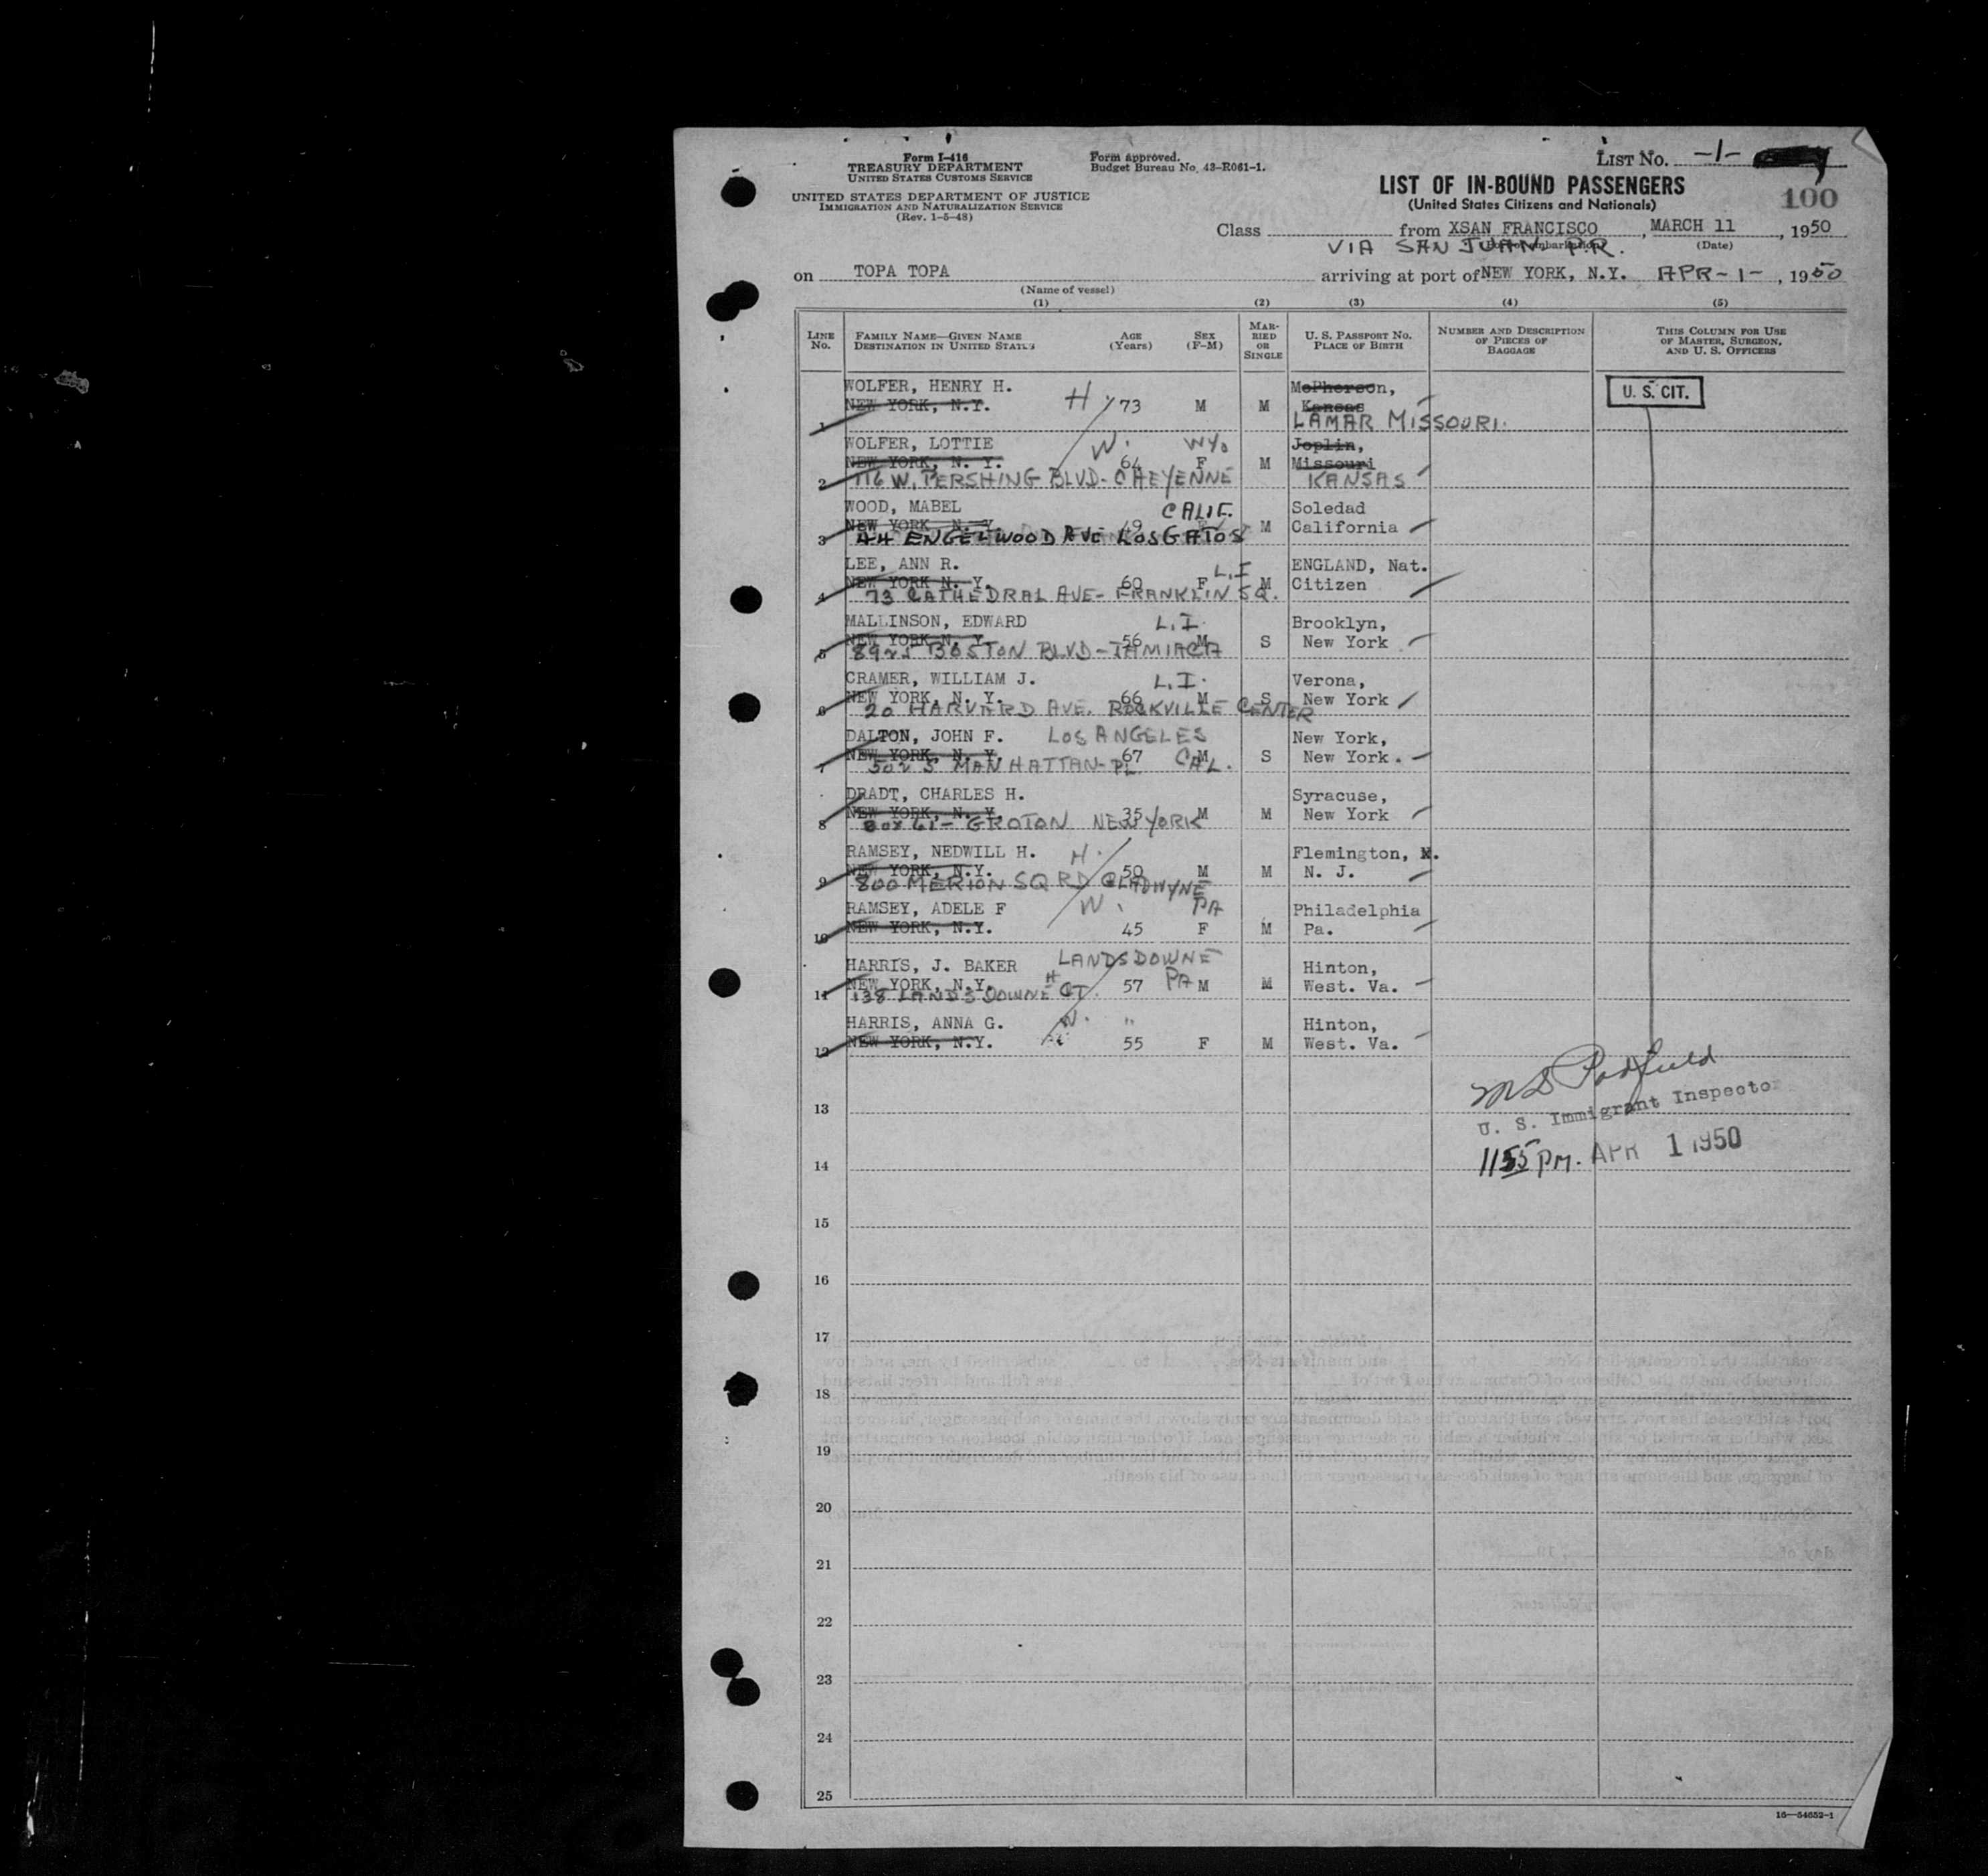 Form I-416
TREASURY DEPARTMENT
UNITED STATES CUSTOMS SERVICE
UNITED STATES DEPARTMENT OF JUSTICE
IMMIGRATION AND NATURALIZATION SERVICE
(Rev. 1-5-48)
Form approved.
Budget Bureau No. 43-R061-1.
LIST NO. -1-
100
LIST OF IN-BOUND PASSENGERS
(United States Citizens and Nationals)
Class from XSAN FRANCISCO, MARCH 11, 1950
VIA SAN JUAN P.R. (Date)
on TOPA TOPA arriving at port of NEW YORK, N.Y. APR-1-, 1950
(Name of vessel)
(1) (2) (3) (4) (5)
LINE No. FAMILY NAME—GIVEN NAME DESTINATION IN UNITED STATES AGE (Years) SEX (F-M) MARRIED OR SINGLE U. S. PASSPORT NO. PLACE OF BIRTH NUMBER AND DESCRIPTION OF PIECES OF BAGGAGE THIS COLUMN FOR USE OF MASTER, SURGEON, AND U. S. OFFICERS
WOLFER, HENRY H. McPherson, U. S. CIT.
1 NEW YORK, N.Y. H. 73 M M Kansas
LAMAR MISSOURI.
WOLFER, LOTTIE W. WYO Joplin,
NEW YORK, N. Y. 64 F M Missouri
2 116 W. PERSHING BLVD- CHEYENNE KANSAS
WOOD, MABEL CALIF. Soledad
NEW YORK N. Y. 49 M California
3 44 ENGELWOOD AVE LOS GATOS
LEE, ANN R. L.I ENGLAND, Nat.
NEW YORK N. Y. 60 F M Citizen
4 73 CATHEDRAL AVE- FRANKLIN SQ.
MALLINSON, EDWARD L.I. Brooklyn,
NEW YORK N. Y. 56 M S New York
5 8925 BOSTON BLVD-JAMIACA
CRAMER, WILLIAM J. L.I. Verona,
NEW YORK, N. Y. 66 M S New York
6 20 HARVARD AVE. ROCKVILLE CENTER
DALTON, JOHN F. LOS ANGELES New York,
NEW YORK, N. Y. 67 M S New York.
7 502 S MANHATTAN-PL CAL.
DRADT, CHARLES H. Syracuse,
NEW YORK, N. Y. 35 M M New York
8 BOX 61- GROTON NEW YORK
RAMSEY, NEDWILL H. H. Flemington,
NEW YORK, N.Y. 50 M M N. J.
9 800 MERION SQ RD GLADWYNE
RAMSEY, ADELE F W. PA Philadelphia
10 NEW YORK, N.Y. 45 F M Pa.
HARRIS, J. BAKER LANDSDOWNE Hinton,
NEW YORK, N.Y. H 57 PA M M West. Va.
11 138 LANDSDOWNE CT.
HARRIS, ANNA G. W. " Hinton,
12 NEW YORK, N.Y. 55 F M West. Va.
13
U. S. Immigrant Inspector
14 1155 PM. APR 1 1950
15
16
17
18
19
20
21
22
23
24
25
16—54652-1